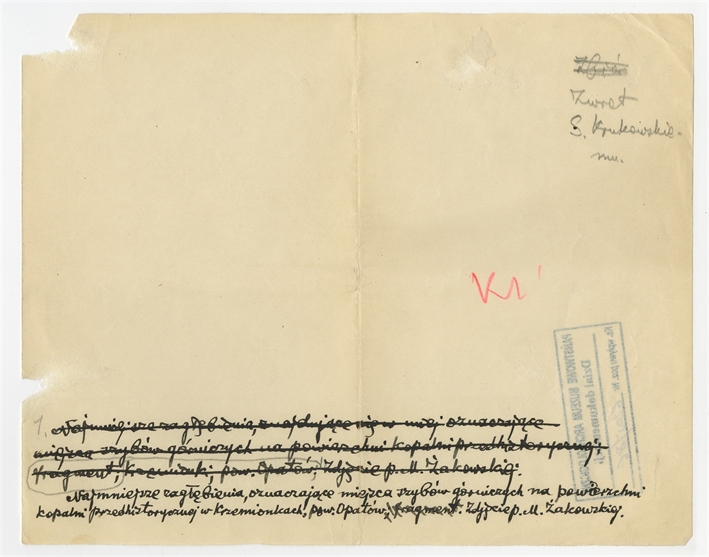 Zwrot
S. Krukowskie-
mu.
K1
1. Najmniejsze zagłębienia, znajdujące się w niej oznaczające
miejsca szybów górniczych na powierzchni kopalni przedhistorycznej;
fragment, Krzemionki, pow. Opatów, Zdjęcie p. M. Żakowskiej.
Najmniejsze zagłębienia, oznaczające miejsca szybów górniczych na powierzchni
kopalni przedhistorycznej w Krzemionkach, pow. Opatów, fragment. Zdjęcie p. M. Żakowskiej.
PAŃSTWOWE MUZEUM
Dział dokument
Nr.